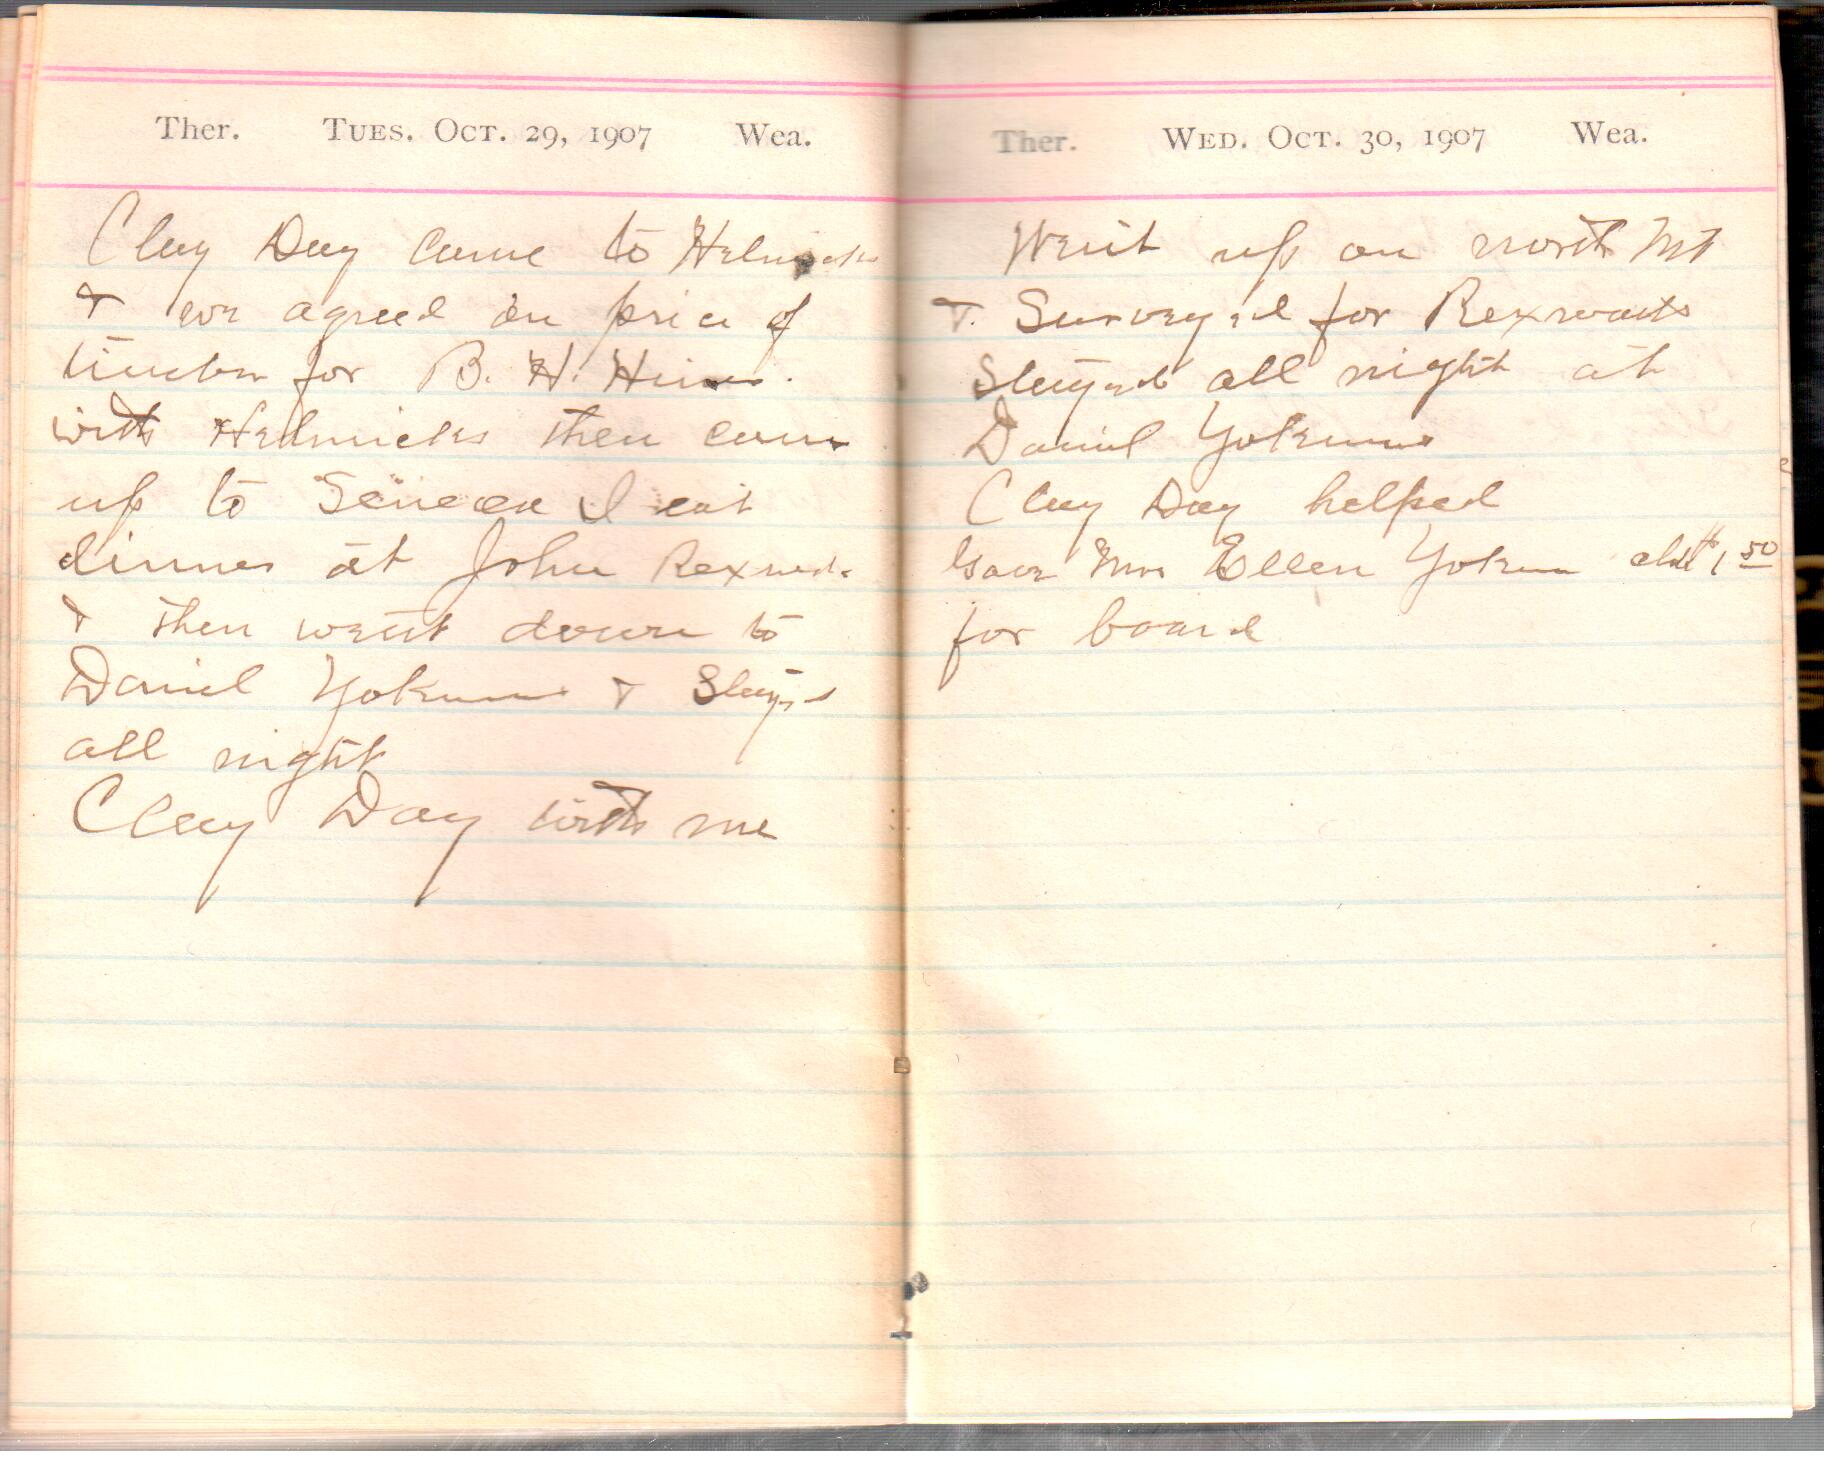 Ther. Tues. Oct. 29, 1907 Wea.
Clay Day came to Helmicks
& we agreed on price of
timber for B. H. Hiner.
with Helmicks then came
up to Seneca I eat
dinner at John
& then went down to
Daniel Yokums & Stayed
all night
Clay Day with me
Ther. Wed. Oct. 30, 1907 Wea.
Went up on north Mt
& Surveyed for Rexroads
Stayed all night at
Daniel Yokums
Clay Day helped
Gave Mrs Ellen Yokum $1 50
for board